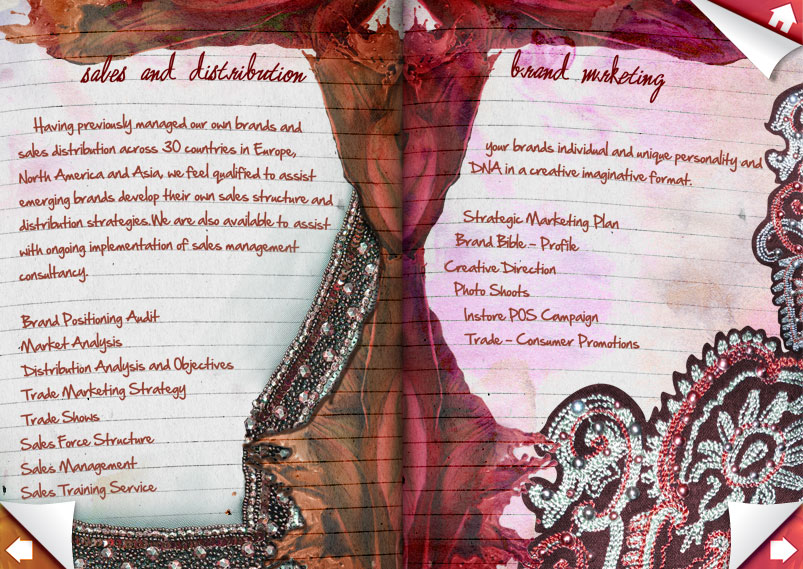 sales and distribution
Having previously managed our own brands and
sales distribution across 30 countries in Europe,
North America and Asia, we feel qualified to assist
emerging brands develop their own sales structure and
distribution strategies.We are also available to assist
with ongoing implementation of sales management
consultancy.
Brand Positioning Audit
Market Analysis
Distribution Analysis and Objectives
Trade Marketing Strategy
Trade Shows
Sales Force Structure
Sales Management
Sales Training Service
brand mrketing
your brands individual and unique personality and
DNA in a creative imaginative format.
Strategic Marketing Plan
Brand Bible - Profile
Creative Direction
Photo Shoots
Instore POS Campaign
Trade - Consumer Promotions